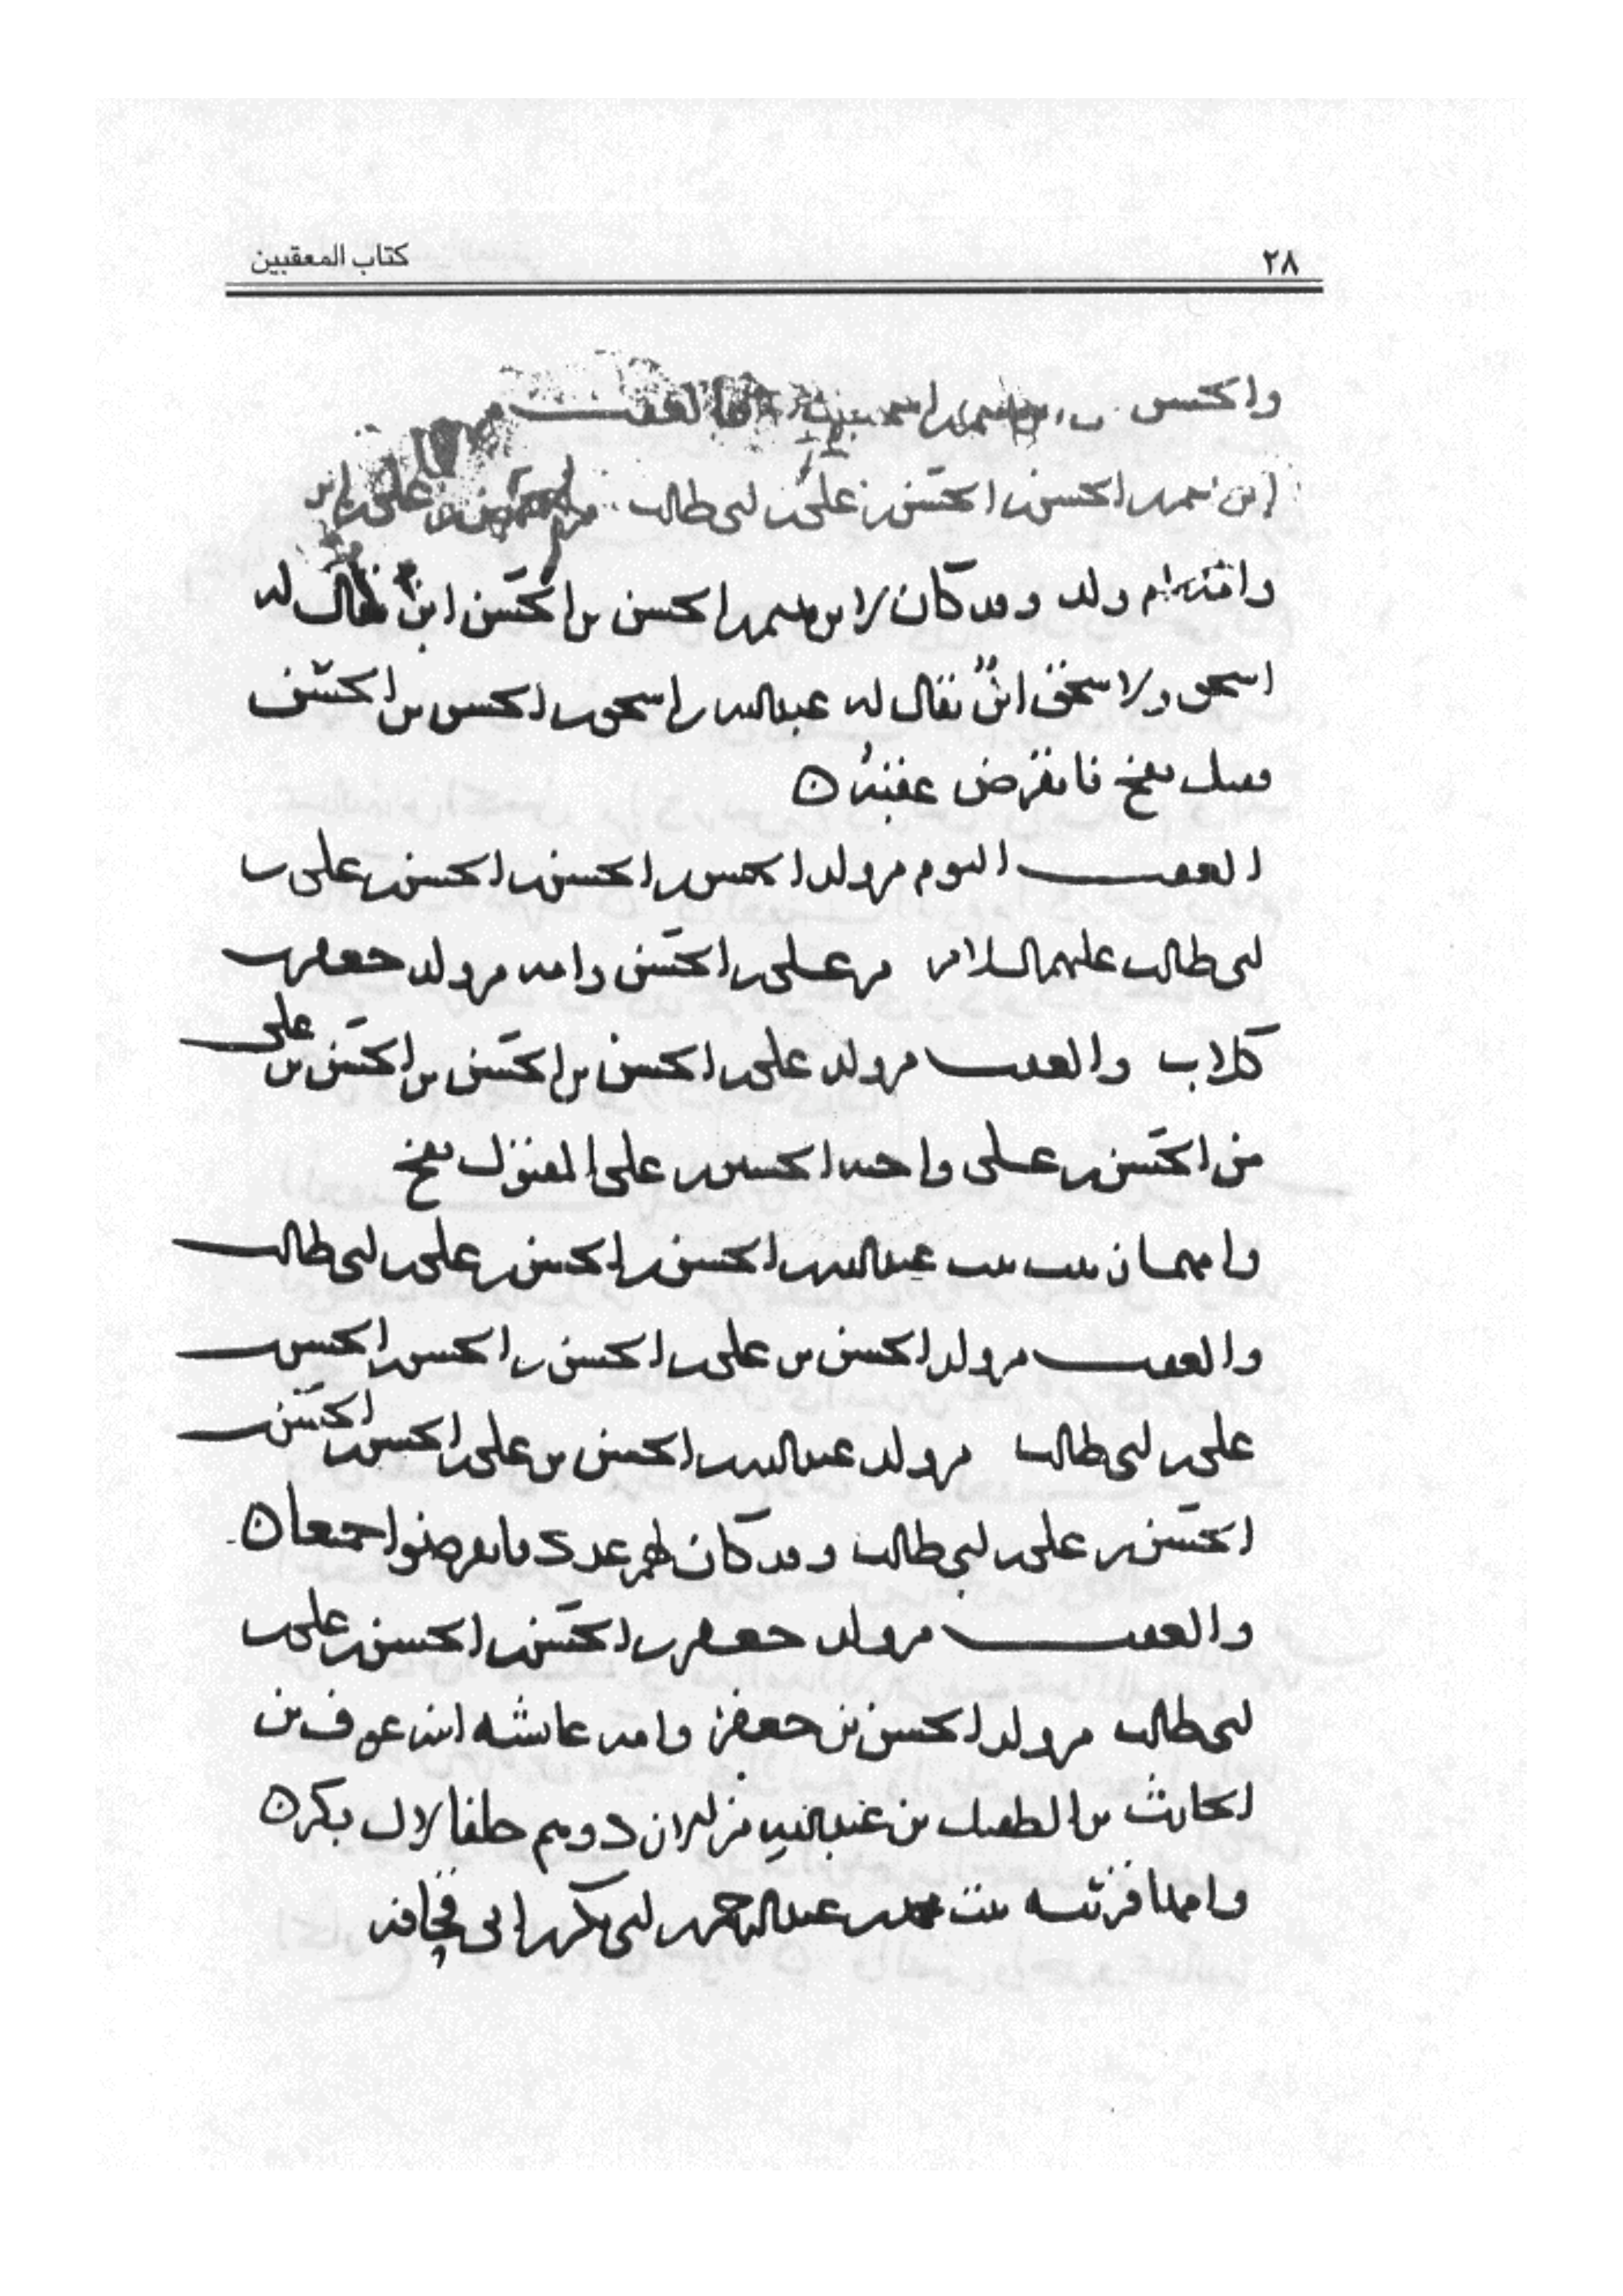 ٢٨
كتاب المعقبين
والحسن
ابن الحسن بن الحسن بن علي بن ابي طالب
ولد وقد كان لابرهيم بن الحسن بن الحسن ابن يقال له
اسحق ولاسحق ابن يقال له عبدالله بن اسحق بن الحسن بن الحسن
قتل بفخ فانقرض عقبه ن
العقب اليوم من ولد الحسن بن الحسن بن الحسن بن علي بن
ابي طالب عليهم السلام من علي بن الحسن وامه من ولد جعفر بن
كلاب والعقب من ولد علي بن الحسن بن الحسن بن الحسن بن علي
من الحسن بن علي واخيه الحسين بن علي المقتول بفخ
وامهما زينب بنت عبدالله بن الحسن بن الحسن بن علي بن ابي طالب
والعقب من ولد الحسن بن علي بن الحسن بن الحسن بن الحسن بن
علي بن ابي طالب من ولد عبدالله بن الحسن بن علي بن الحسن بن الحسن بن
الحسن بن علي بن ابي طالب وقد كان لهم عدد فانقرضوا جميعا ن
والعقب من ولد جعفر بن الحسن بن الحسن بن علي بن
ابي طالب من ولد الحسن بن جعفر وامه عائشه ابنة عوف بن
الحارث بن الطفيل بن عبدالله من زهران دوسهم حلفا لال بكر ن
وامها قريبه بنت محمد بن عبدالرحمن بن ابي بكر بن ابي قحافه